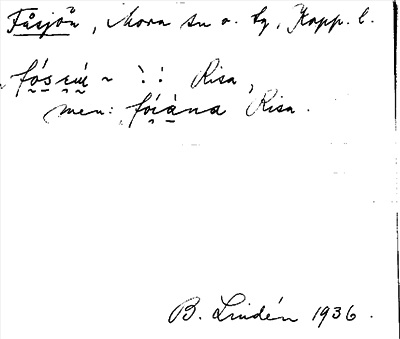 Fåsjön, Mora sn o. tg, Kopp. l.
fó̰s̰ɛ̰ḿ ~ `:´ Risa,
men: fóìàna Risa.
B. Lindén 1936.